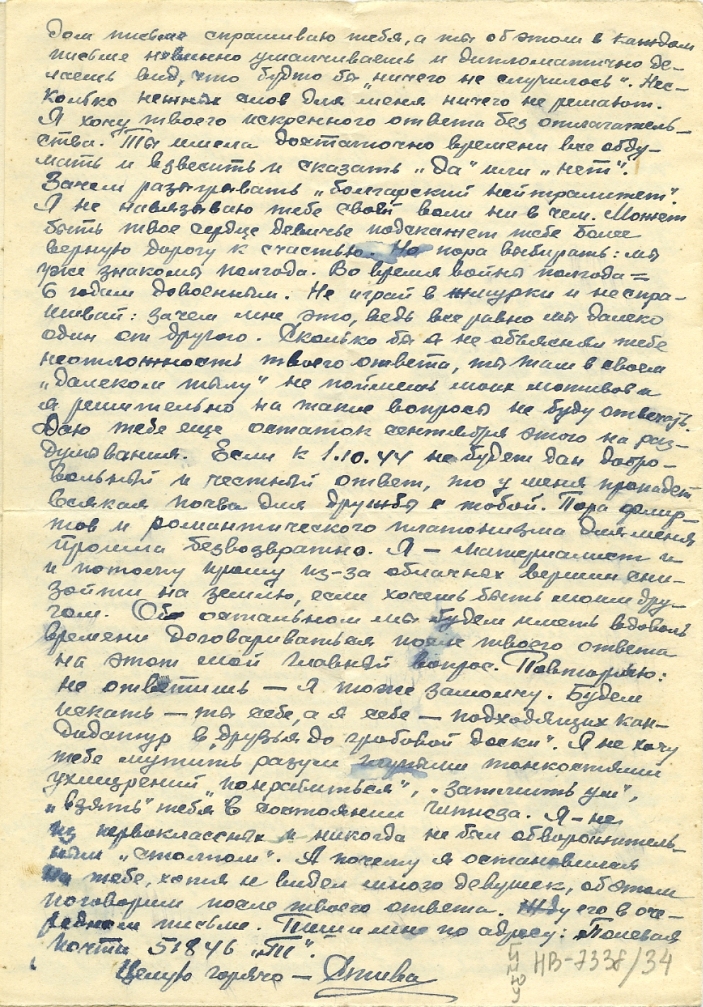 дом письме спрашиваю тебя, а ты об этом в каждом
письме невинно умалчиваешь и дипломатично де-
лаешь вид, что будто бы "ничего не случилось". Нес-
колько нежных слов для меня ничего не решают.
Я хочу твоего искренного ответа без отлагатель-
ства. Ты имела достаточно времени все обду-
мать и взвесить и сказать "да" или "нет".
Зачем разыгрывать "болгарский нейтралитет".
Я не навязываю тебе своей воли ни в чем. Может
быть твое сердце девичье подскажет тебе более
верную дорогу к счастью. Но пора выбирать: мы
уже знакомы полгода. Во время войны полгода =
6 годам довоенным. Не играй в жмурки и не спра-
шивай: зачем мне это, ведь все равно мы далеко
один от другого. Сколько бы я не объяснял тебе
неотложность твоего ответа, ты там в своем
"далеком тылу" не поймешь моих мотивов и
я решительно на такие вопросы не буду отвечать.
Даю тебе еще остаток сентября этого на раз-
думывания. Если к 1.10.44 не будет дан добро-
вольный и честный ответ, то у меня пропадет
всякая почва для дружбы с тобой. Пора флир-
тов и романтического платонизма для меня
прошла безвозвратно. Я – материалист и
и потому прошу из-за облачных вершин сни-
зойти на землю, если хочешь быть моим дру-
гом. Об остальном мы будем иметь вдоволь
времени договариваться после твоего ответа
на этот мой главный вопрос. Повторяю:
не ответишь – я тоже замолчу. Будем
искать – ты себе, а я себе – подходящих кан-
дидатур в "друзья до гробовой доски". Я не хочу
тебе мутить разум тонкостями
ухищрений "понравиться", "затмить ум",
"взять" тебя в состоянии гипноза. Я – не
из первоклассных и никогда не был обворожитель-
ным "столпом". А почему я остановился
на тебе, хотя и видел много девушек, об этом
поговорим после твоего ответа. Жду его в оче-
редном письме. Пиши мне по адресу: Полевая
почта 51846 "Т".
Целую горячо –
НВ-7338/34